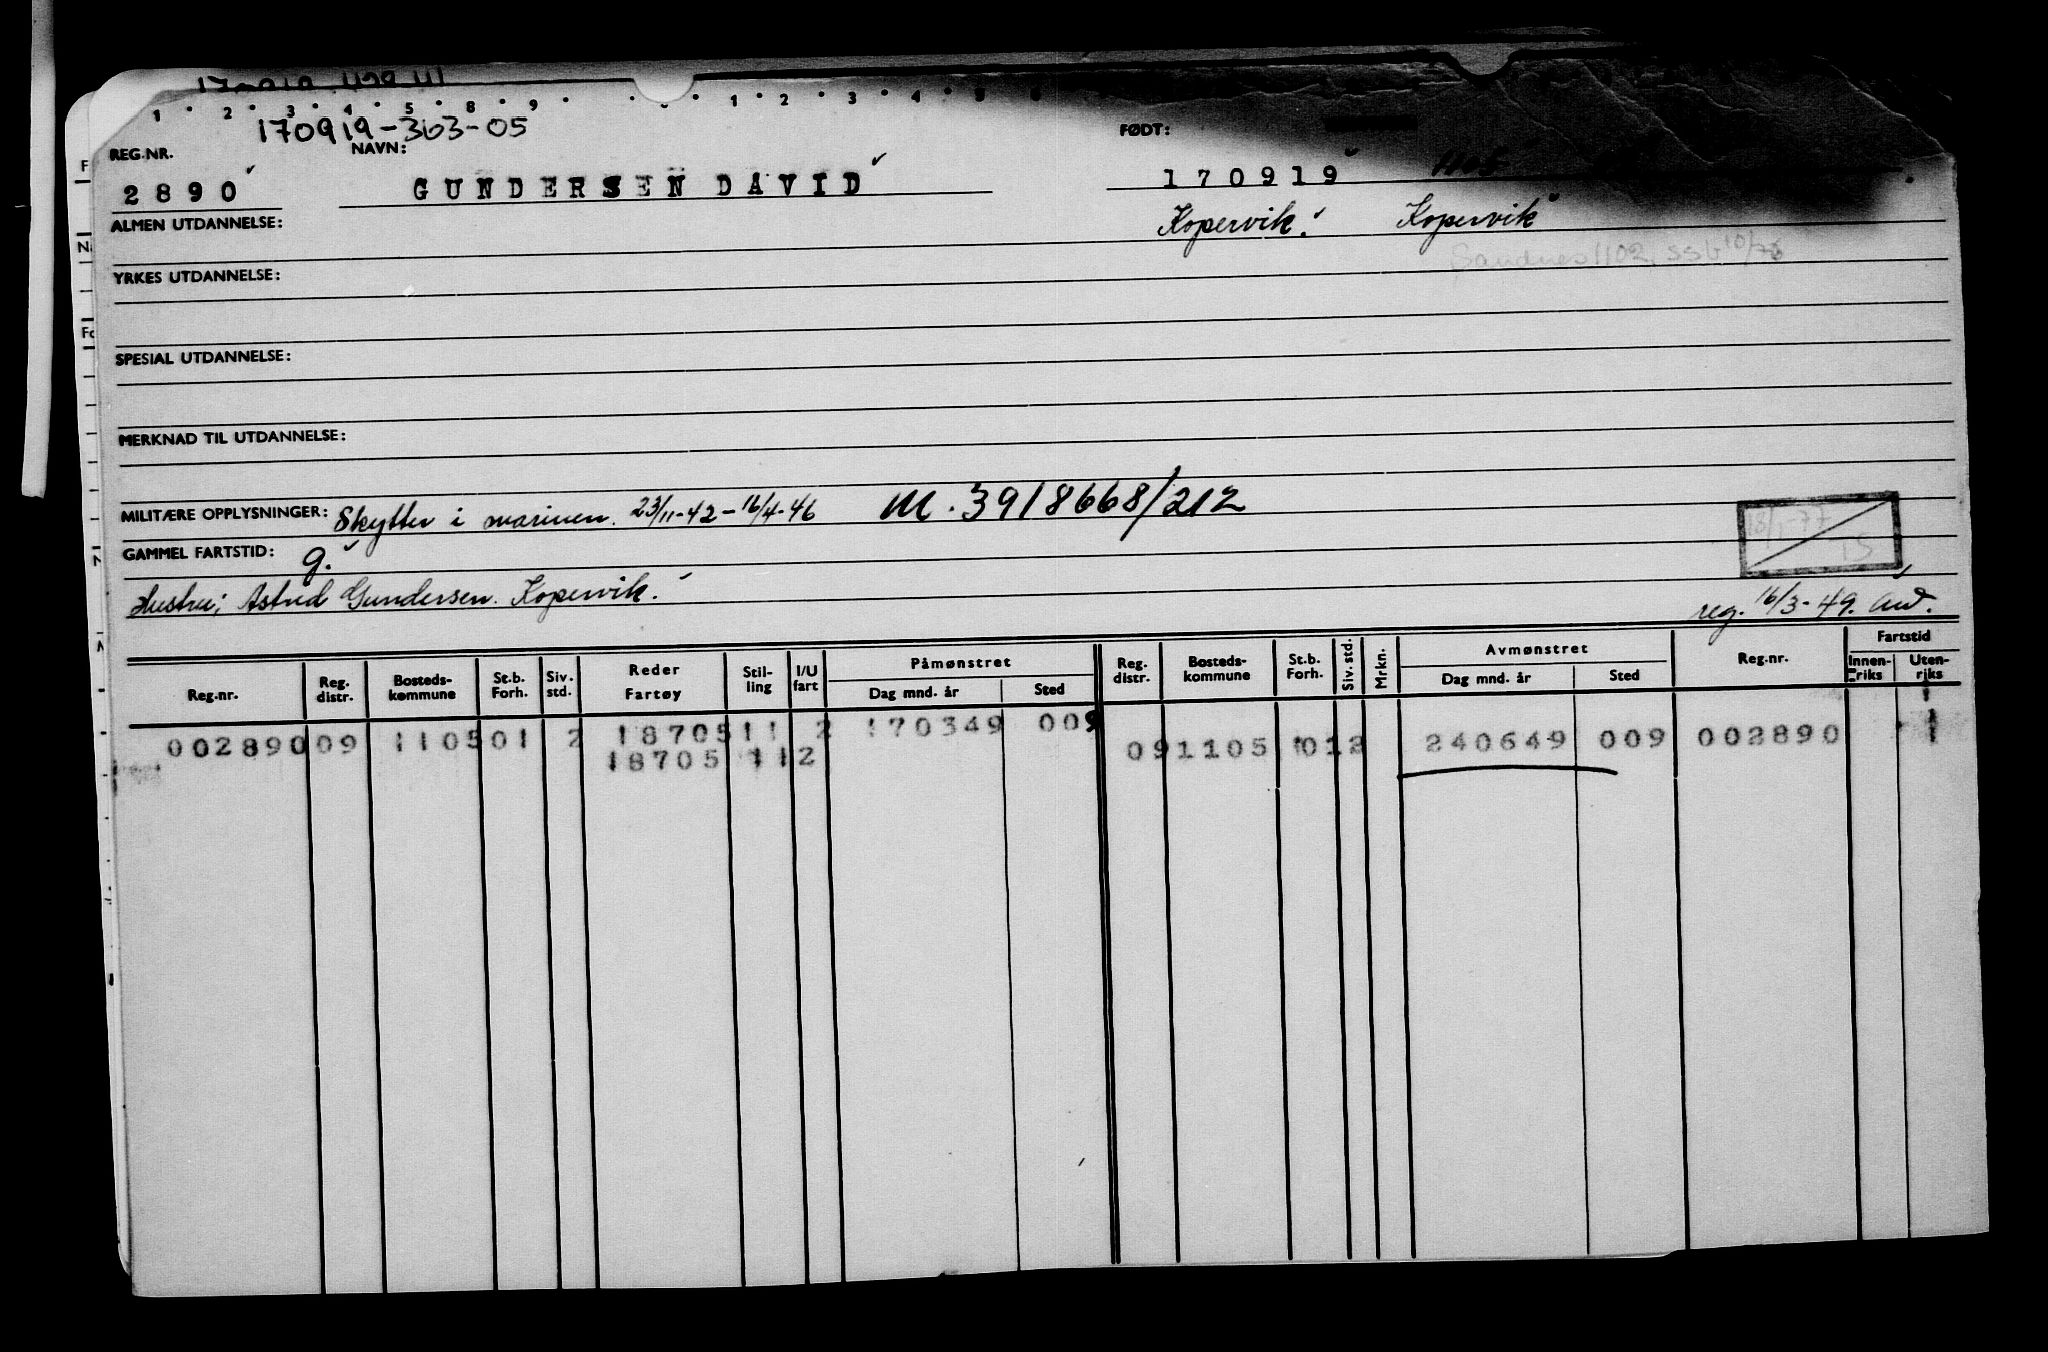 1 2 3 4 5 8 9 1 2 3 4 5
170919-363-05
REG.NR. NAVN: FØDT:
2890 GUNDERSEN DAVID 170919 1105
ALMEN UTDANNELSE: Kopervik. Kopervik
Sandnes 1102, SSb 10/76
YRKES UTDANNELSE:
SPESIAL UTDANNELSE:
MERKNAD TIL UTDANNELSE:
MILITÆRE OPPLYSNINGER: Skytter i marinen. 23/11-42-16/4-46 M. 3918668/212
GAMMEL FARTSTID: g.
18/1-77 IS
Hustru; Astrid Gundersen. Kopervik.
reg. 16/3-49.
Reg.nr. Reg. distr. Bosteds-kommune St.b. Forh. Siv. std. Reder Fartøy Stil-ling I/U fart Påmønstret Dag mnd. år Sted Reg. distr. Bosteds-kommune St.b. Forh. Siv. std. Mrkn. Avmønstret Dag mnd. år Sted Reg.nr. Fartstid Innen-riks Uten-riks
002890 09 1105 01 2 18705 11 2 170349 009 09 1105 01 2 240649 009 002890 1
18705 11 2